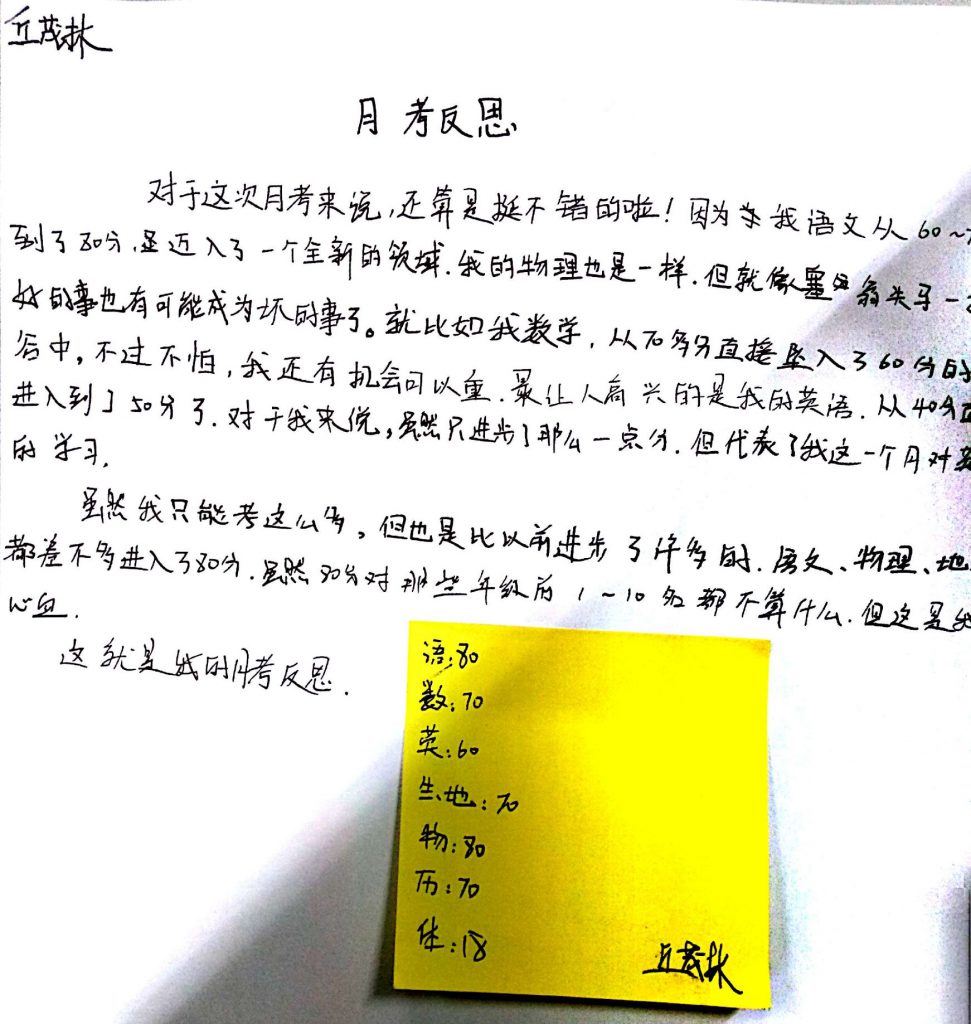 丘茂林
月考反思
对于这次月考来说,还算是挺不错的啦!因为我语文从60~7
到了80分,迈入了一个全新的领域.我的物理也是一样.但就像塞翁失马一
好的事也有可能成为坏的事了。就比如我数学,从70多分直接坠入了60分的
谷中,不过不怕,我还有机会可以重.最让人高兴的是我的英语.从40分
进入到了50分了.对于我来说,虽然只进步了那么一点分.但代表了我这一个月对英
的学习.
虽然我只能考这么多。但也是比以前进步了许多的.语文、物理、地
都差不多进入了80分.虽然80分对那些年级前1~10名都不算什么.但这是我
心血.
这就是我的月考反思.
语:80
数:70
英:60
生、地:70
物:80
历:70
体:18
丘茂林